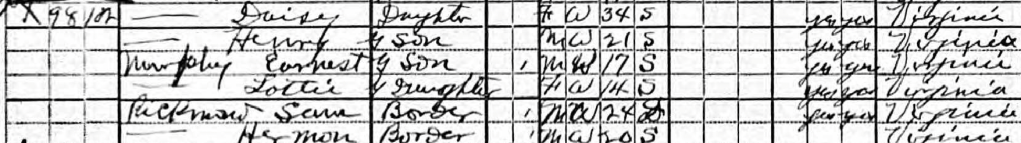 X 98 102 — Daisy Daughter F W 34 S yes yes Virginia
— Henry G Son M W 21 S yes yes Virginia
Murphy Earnest G Son M W 17 S yes yes Virginia
— Lottie G Daughter F W 14 S yes yes Virginia
Sam Border M W 24 D yes yes Virginia
— Hermon Border M W 20 S Virginia